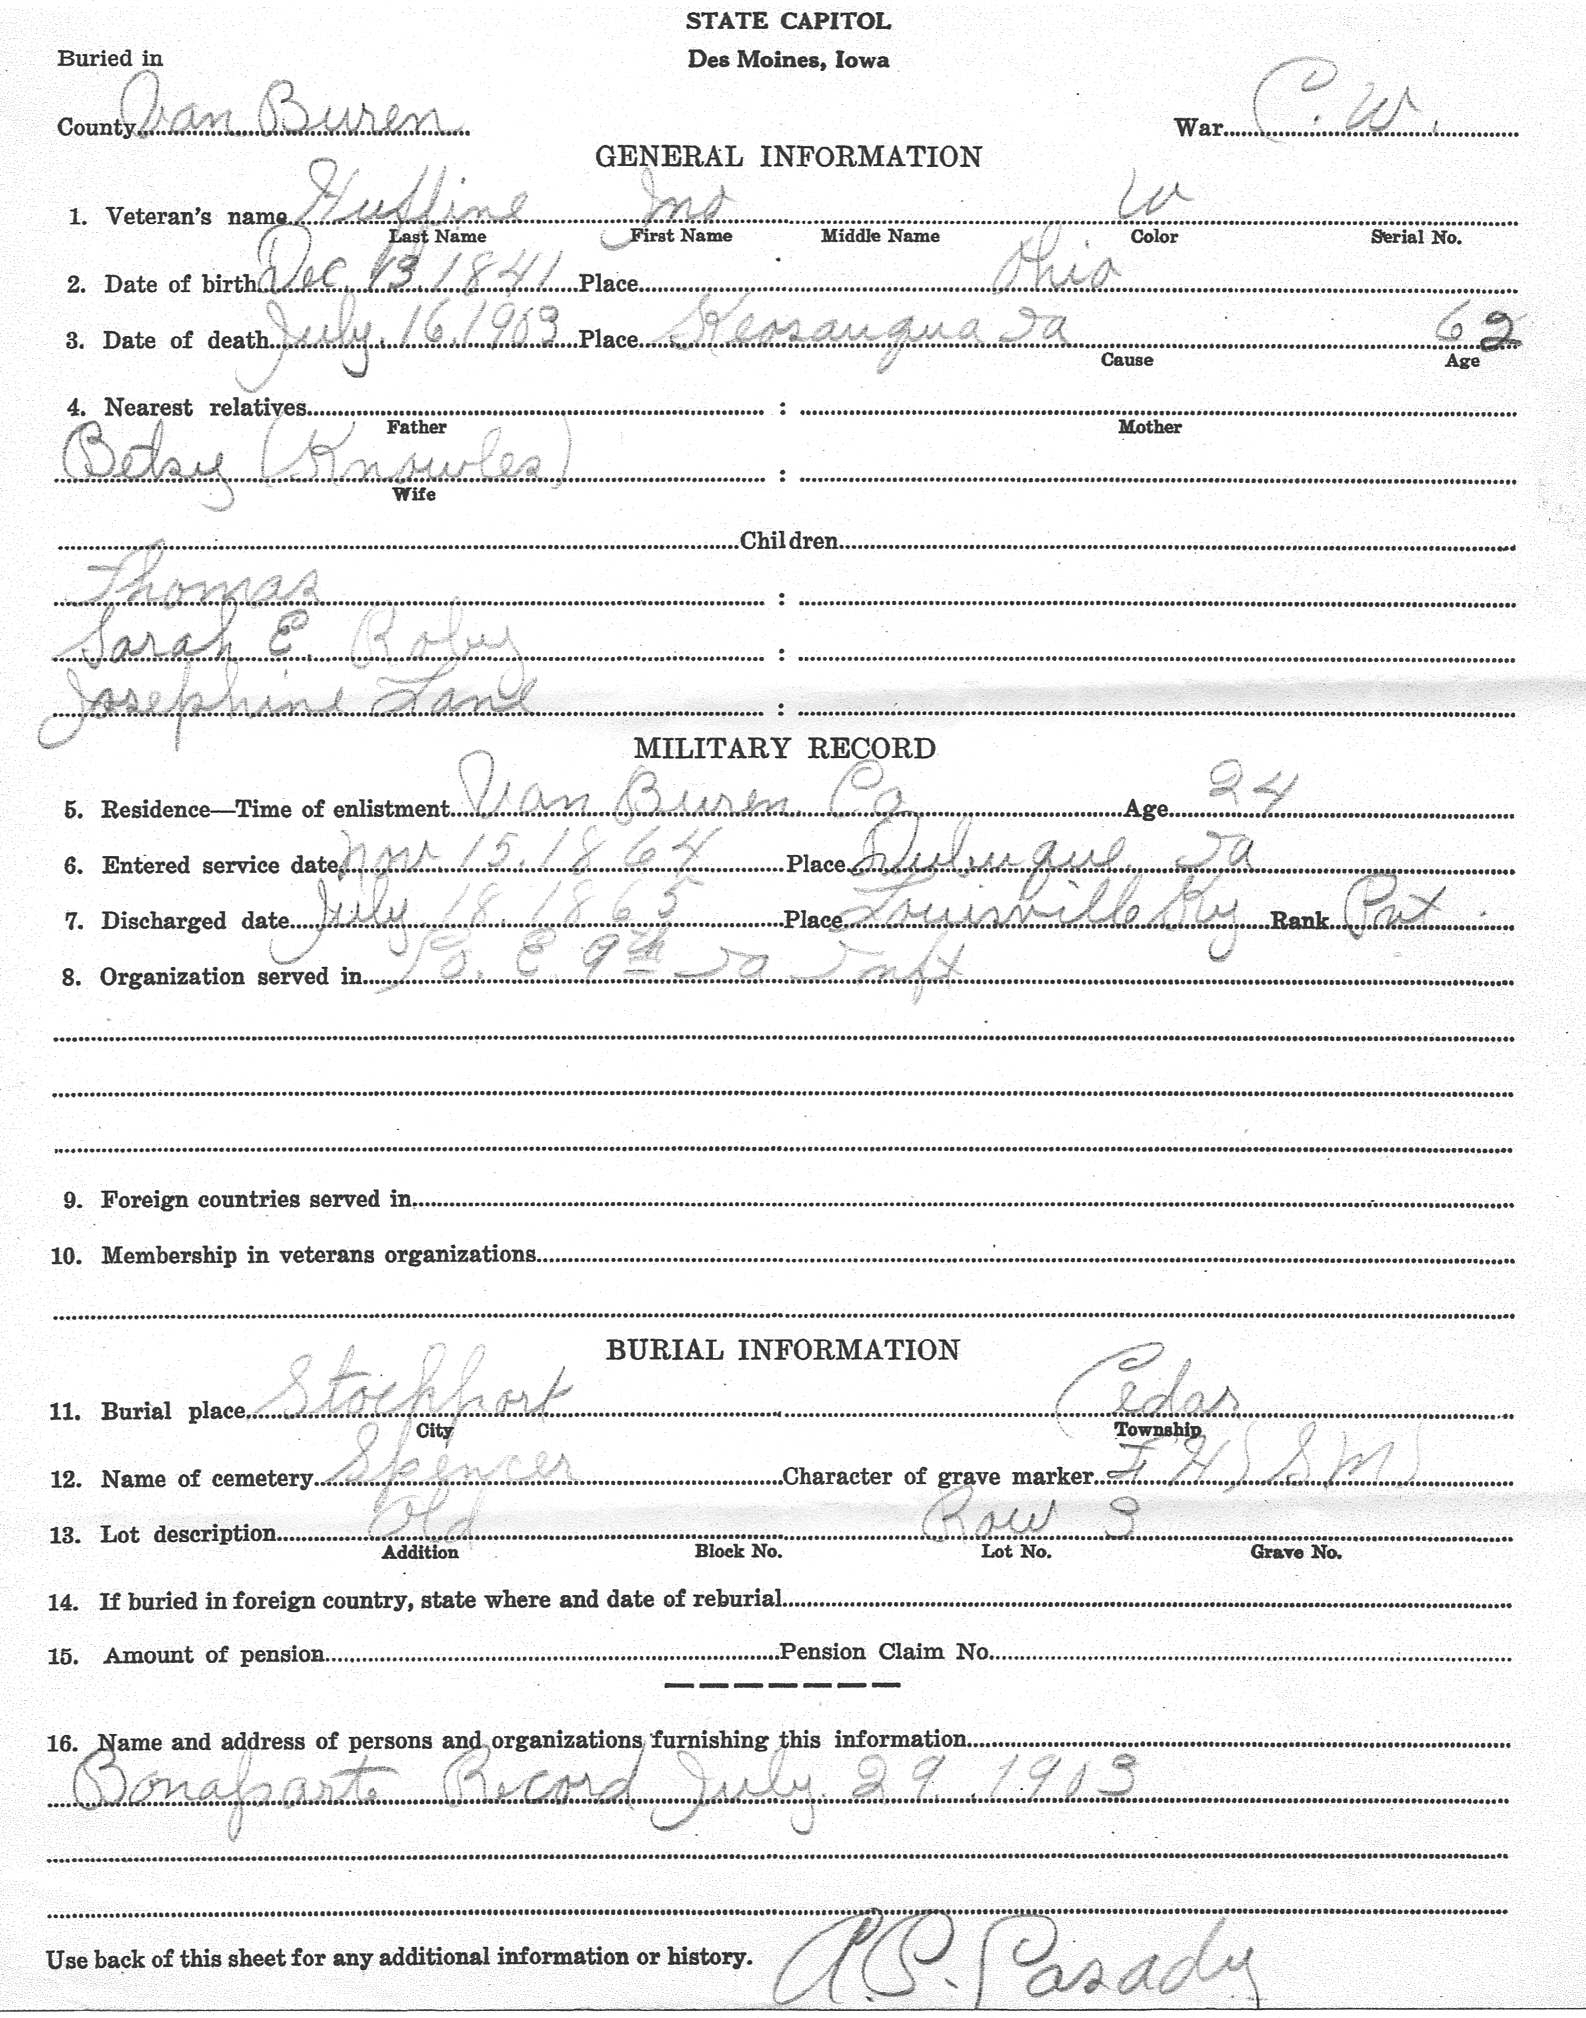 STATE CAPITOL
Des Moines, Iowa
Buried in
County Van Buren War C. W.
GENERAL INFORMATION
1. Veteran's name Huffine Jno W
Last Name First Name Middle Name Color Serial No.
2. Date of birth Dec. 13. 1841 Place Ohio
3. Date of death July. 16. 1903 Place Keosauqua Ia 62
Cause Age
4. Nearest relatives :
Father Mother
Betsy (Knowles) :
Wife
Children
Thomas :
Sarah E. Roby :
Josephine Lane :
MILITARY RECORD
5. Residence—Time of enlistment Van Buren Co Age 24
6. Entered service date Nov. 15. 1864 Place Dubuque Ia
7. Discharged date July 18. 1865 Place Louisville Ky Rank Pvt.
8. Organization served in Co. E 9th Ia Inft
9. Foreign countries served in
10. Membership in veterans organizations
BURIAL INFORMATION
11. Burial place Stockport Cedar
City Township
12. Name of cemetery Spencer Character of grave marker F H) S M)
13. Lot description Old Row 3
Addition Block No. Lot No. Grave No.
14. If buried in foreign country, state where and date of reburial
15. Amount of pension Pension Claim No.
16. Name and address of persons and organizations furnishing this information
Bonaparte Record July. 29. 1903
Use back of this sheet for any additional information or history.